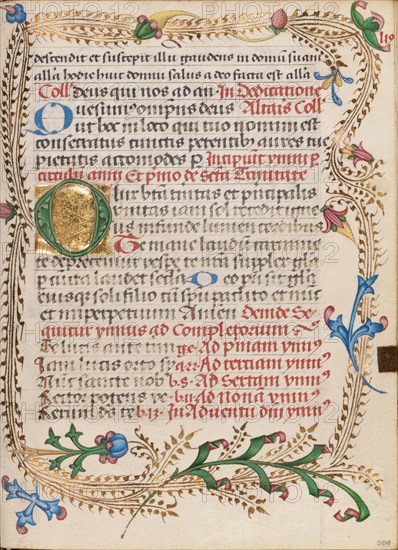 descendit et suscepit illū gaudens in domū suam
alla hodie huic domui salus a deo facta est alla
Coll Deus qui nos ad an In Dedicatione
Quesumus omnipotens deus Altaris Coll
ut hoc in loco qui tuo nomini est
consecratus cunctis petentibus aures tue
pietatis accomodes p Incipiunt ymni p
circulū anni Et primo de scta Trinitate
O lux bta trinitas et principalis
unitas iam sol recedit igne
us infunde lumen cordibus
Te mane laudum carmine
te deprecemur vespe te nra supplex gla
p cuncta laudet secla Deo pri sit gla
eiusq soli filio cū spū paraclito et nunc
et imperpetuum Amen Deinde Se
quitur ymnus ad Completorium
Te lucis ante ter ge Ad primam ymn
Iam lucis orto sy a 22 Ad tertiam ymn
Nunc sancte nob b 8 Ad Sextam ymn
Rector potens ve b 11 Ad nonā ymn
Rerum da te b 12 In Adventu dni ymn